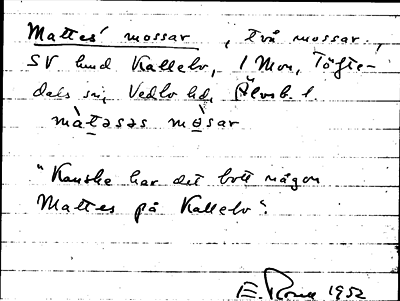 Mattes' mossar, två mossar,
SV hmd Kallelv, 1 Mon, Töfte-
dals sn, Vedbo hd, Älvsb. l.
màt̲əsəs mòsar
"Kanske har det bott någon
Mattes på Kallelv".
E. 1952